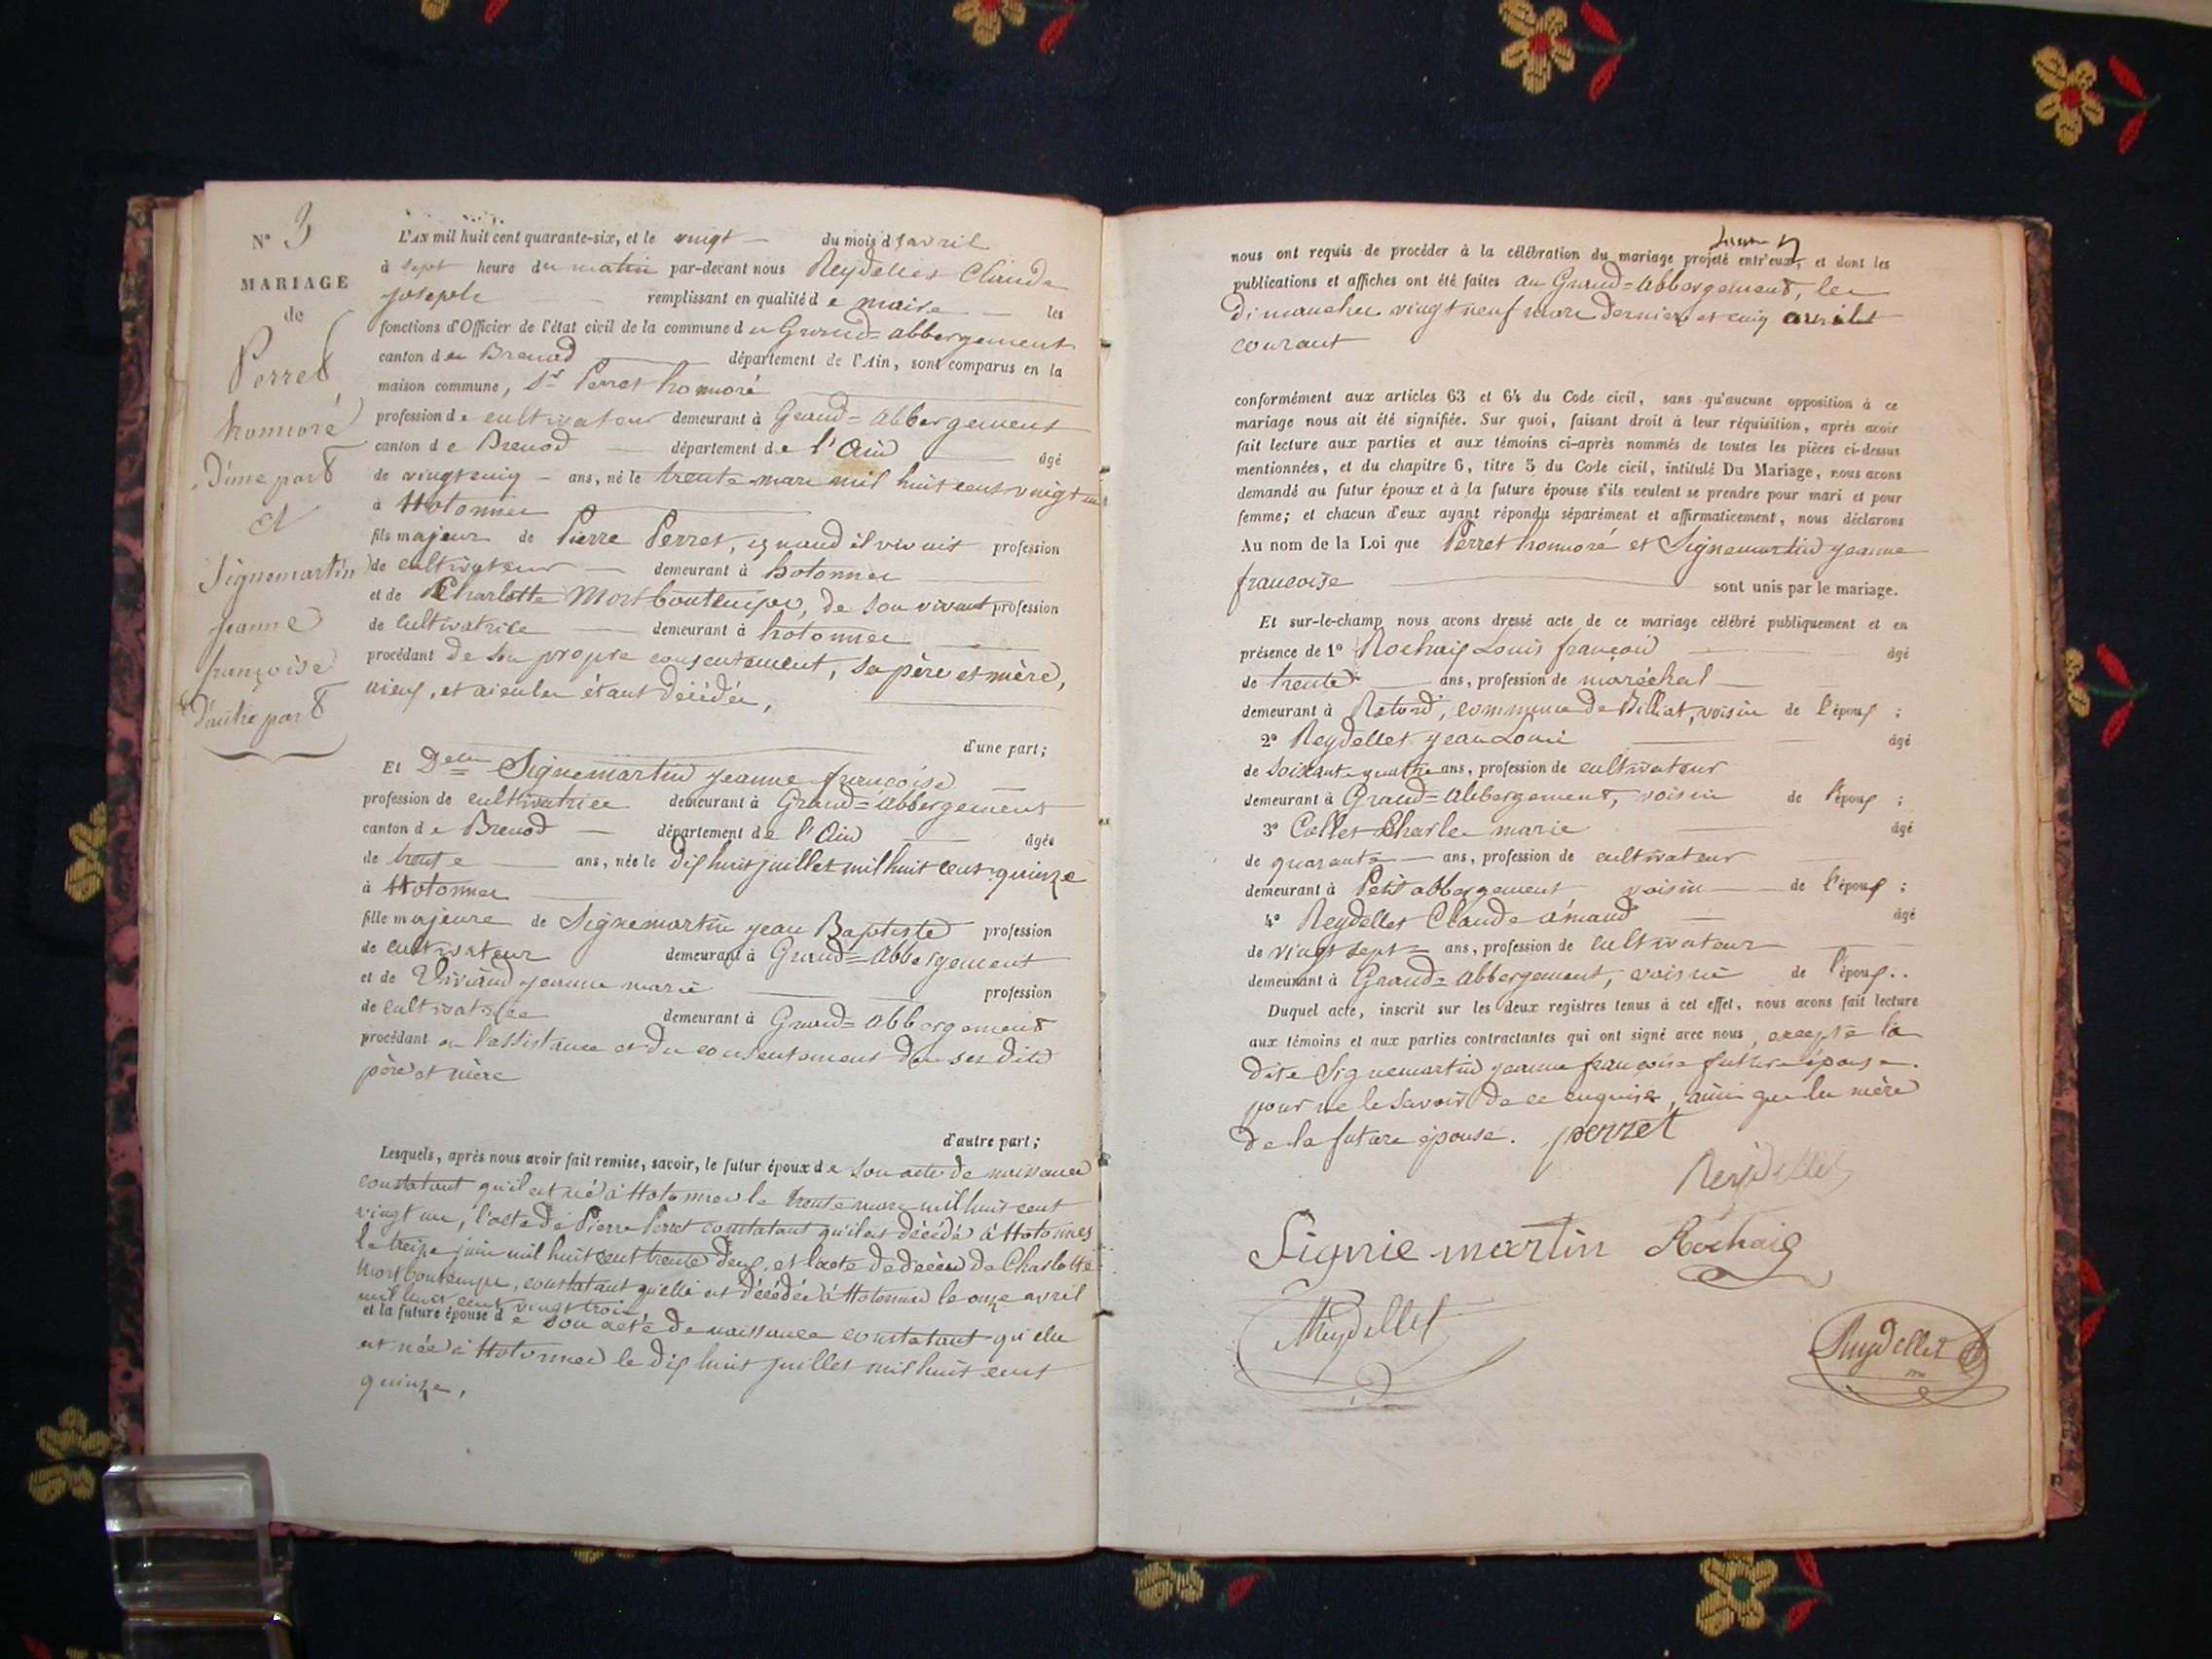 N° 3
MARIAGE
de
Perret
honnoré
d'une part
et
Signemartin
jeanne
françoise
d'autre part
L'AN mil huit cent quarante-six, et le vingt du mois d'avril
à sept heure du matin par-devant nous Reydellet Claude
joseph remplissant en qualité de maire les
fonctions d'Officier de l'état civil de la commune du Grand=abbergement
canton de Brenod département de l'Ain, sont comparus en la
maison commune, Sr Perret honnoré
profession de cultivateur demeurant à Grand=abbergement
canton de Brenod département de l'Ain âgé
de vingt cinq ans, né le trente mars mil huit cent vingt un
à Hotonnes
fils majeur de Pierre Perret, quand il vivait profession
de cultivateur demeurant à hotonnes
et de Charlotte Montbontemps, de son vivant profession
de cultivatrice demeurant à hotonnes
procédant de son propre consentement, ses père et mère,
aieuls, et aieules étant décédés,
d'une part;
Et Delle Signemartin jeanne françoise
profession de cultivatrice demeurant à Grand=abbergement
canton de Brenod département de l'Ain âgée
de trente ans, née le dix huit juillet mil huit cent quinze
à Hotonnes
fille majeure de Signemartin jean Baptiste profession
de cultivateur demeurant à Grand=Abbergement
et de Viviand jeanne marie profession
de cultivatrice demeurant à Grand=abbergement
procédant en l'assistance et du consentement de ses dits
père et mère
d'autre part;
Lesquels, après nous avoir fait remise, savoir, le futur époux de son acte de naissance
constatant qu'il est né à Hotonnes le trente mars mil huit cent
vingt un, l'acte de Pierre Perret constatant qu'il est décédé à Hotonnes
le treize juin mil huit cent trente deux, et l'acte de décès de Charlotte
Montbontemps, constatant qu'elle est décédée à Hotonnes le onze avril
mil huit cent vingt trois,
et la future épouse de son acte de naissance constatant qu'elle
est née à Hotonnes le dix huit juillet mil huit cent
quinze,
nous ont requis de procéder à la célébration du mariage projeté entr'eux, et dont les
publications et affiches ont été faites au Grand=Abbergement, les
dimanches vingt neuf mars dernier et cinq avril
courant
conformément aux articles 63 et 64 du Code civil, sans qu'aucune opposition à ce
mariage nous ait été signifiée. Sur quoi, faisant droit à leur réquisition, après avoir
fait lecture aux parties et aux témoins ci-après nommés de toutes les pièces ci-dessus
mentionnées, et du chapitre 6, titre 5 du Code civil, intitulé Du Mariage, nous avons
demandé au futur époux et à la future épouse s'ils veulent se prendre pour mari et pour
femme; et chacun d'eux ayant répondu séparément et affirmativement, nous déclarons
Au nom de la Loi que Perret honnoré et Signemartin jeanne
françoise sont unis par le mariage.
Et sur-le-champ nous avons dressé acte de ce mariage célébré publiquement et en
présence de 1° Rochaix Louis françois âgé
de trente ans, profession de maréchal
demeurant à Retord, commune de Billiat, voisin de l'époux ;
2° Reydellet jean Louis âgé
de soixante quatre ans, profession de cultivateur
demeurant à Grand=Abbergement, voisin de l'époux ;
3° Collet Charle marie âgé
de quarante ans, profession de cultivateur
demeurant à Petit abbergement voisin de l'époux ;
4° Reydellet Claude amand âgé
de vingt sept ans, profession de cultivateur
demeurant à Grand=abbergement, voisin de l'époux.
Duquel acte, inscrit sur les deux registres tenus à cet effet, nous avons fait lecture
aux témoins et aux parties contractantes qui ont signé avec nous, excepté la
dite Signemartin jeanne françoise future épouse
pour ne le savoir de ce enquise, ainsi que la mère
de la future épouse. perret
Reydellet
Signie martin Rochaix
Reydellet
Reydellet